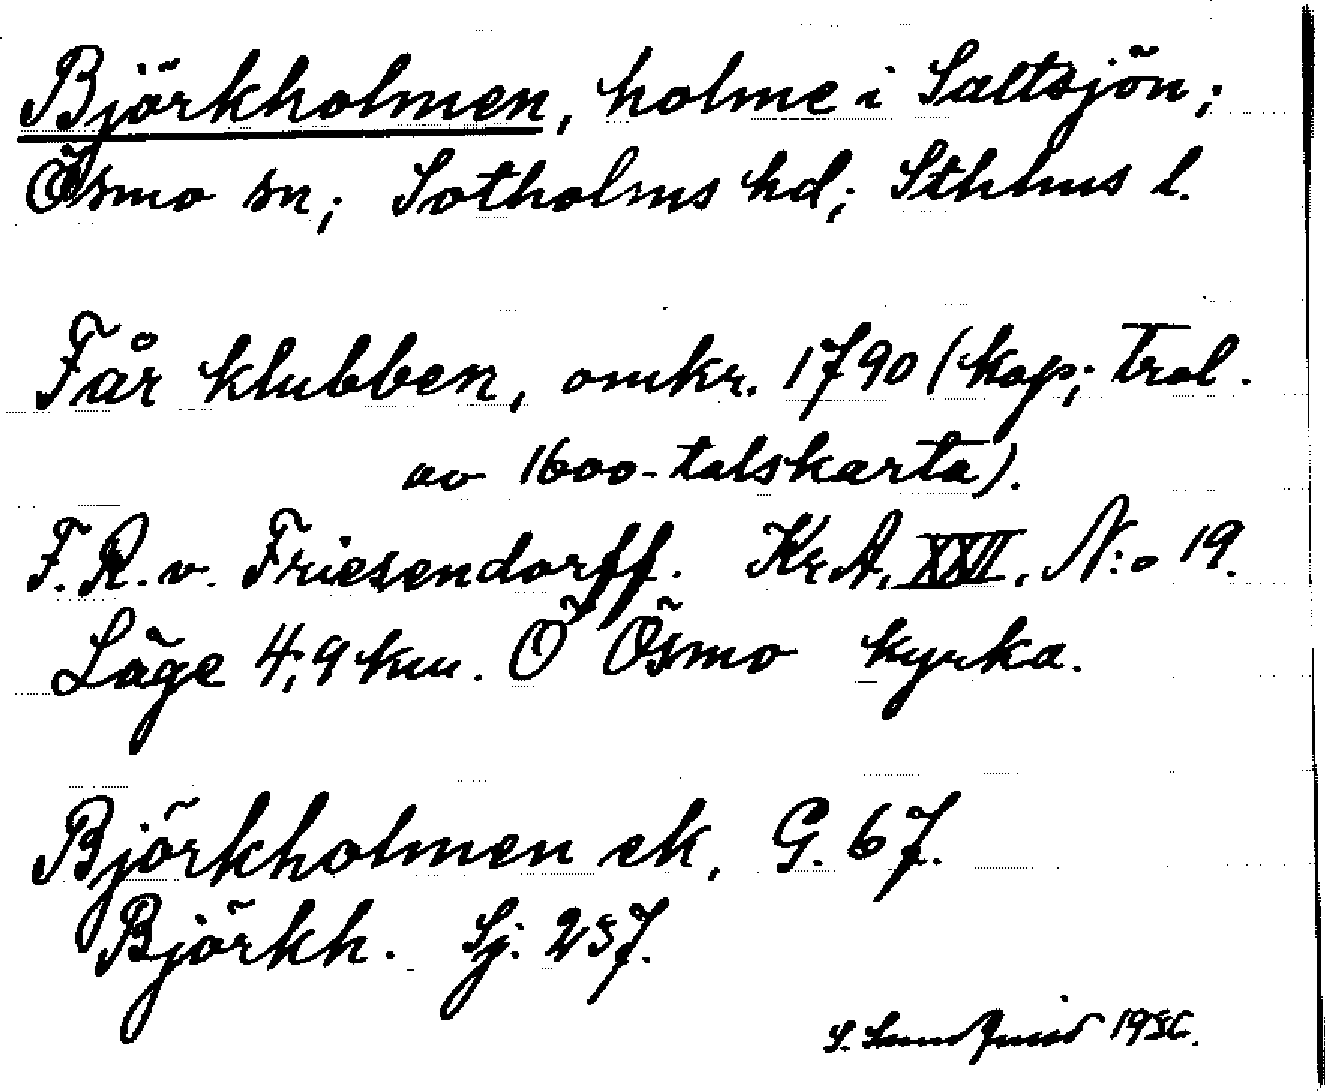 Björkholmen, holme i Saltsjön;
Ösmo sn; Sotholms hd; Sthlms l.
Får klubben, omkr. 1790 (kop; Trol.
av 1600-talskarta).
F.R.v. Friesendorff. Kr.A. XXII. N:o 19.
Läge 4,9 km. Ö Ösmo kyrka.
Björkholmen ek, G. 67.
Björkh. Sj. 257.
S. 1936.